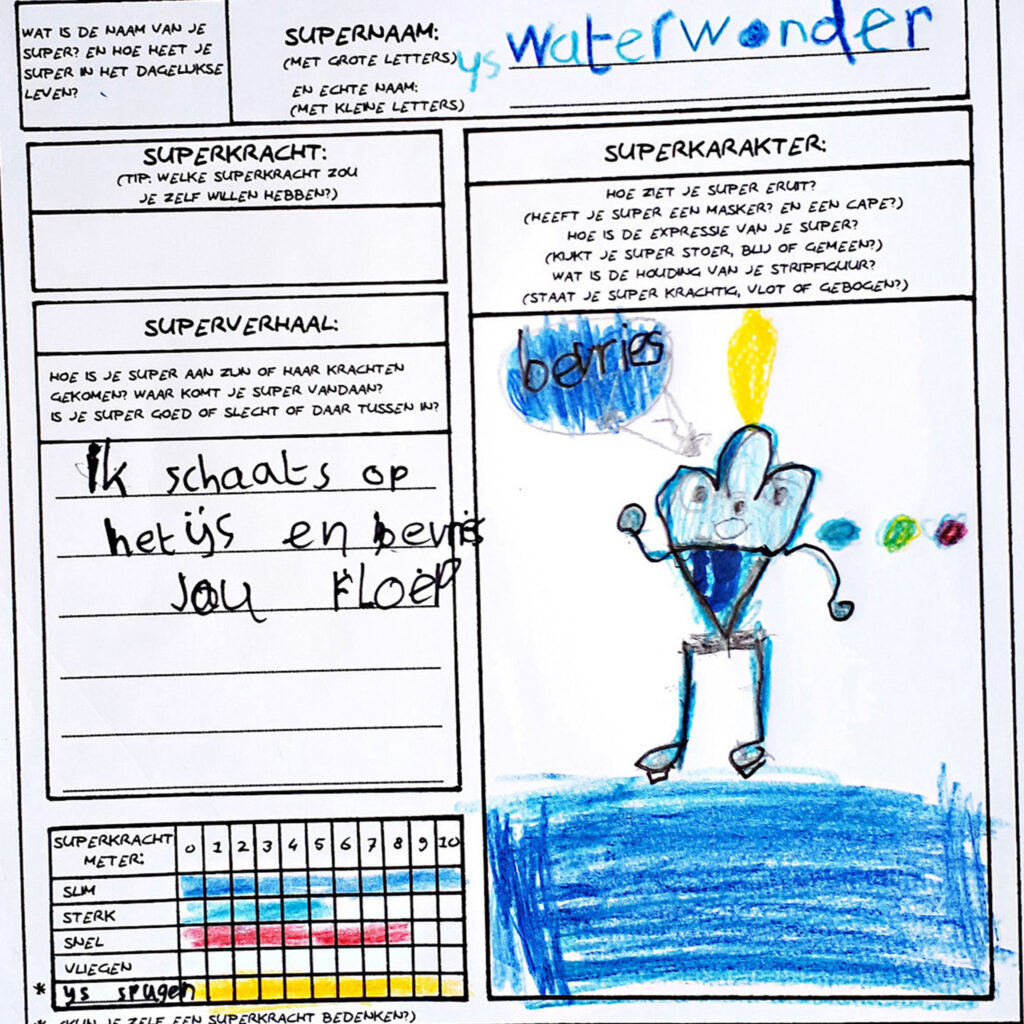 WAT IS DE NAAM VAN JE
SUPER? EN HOE HEET JE
SUPER IN HET DAGELIJKSE
LEVEN?
SUPERNAAM:
(MET GROTE LETTERS)
ys waterwonder
EN ECHTE NAAM:
(MET KLEINE LETTERS)
SUPERKRACHT:
(TIP: WELKE SUPERKRACHT ZOU
JE ZELF WILLEN HEBBEN?)
SUPERVERHAAL:
HOE IS JE SUPER AAN ZIJN OF HAAR KRACHTEN
GEKOMEN? WAAR KOMT JE SUPER VANDAAN?
IS JE SUPER GOED OF SLECHT OF DAAR TUSSEN IN?
Ik schaats op
het ijs en bevries
jou FLOEP
SUPERKRACHT 0 1 2 3 4 5 6 7 8 9 10
METER:
SLIM
STERK
SNEL
VLIEGEN
* ys spugen
* (KUN JE ZELF EEN SUPERKRACHT BEDENKEN?)
SUPERKARAKTER:
HOE ZIET JE SUPER ERUIT?
(HEEFT JE SUPER EEN MASKER? EN EEN CAPE?)
HOE IS DE EXPRESSIE VAN JE SUPER?
(KIJKT JE SUPER STOER, BLIJ OF GEMEEN?)
WAT IS DE HOUDING VAN JE STRIPFIGUUR?
(STAAT JE SUPER KRACHTIG, VLOT OF GEBOGEN?)
bevries